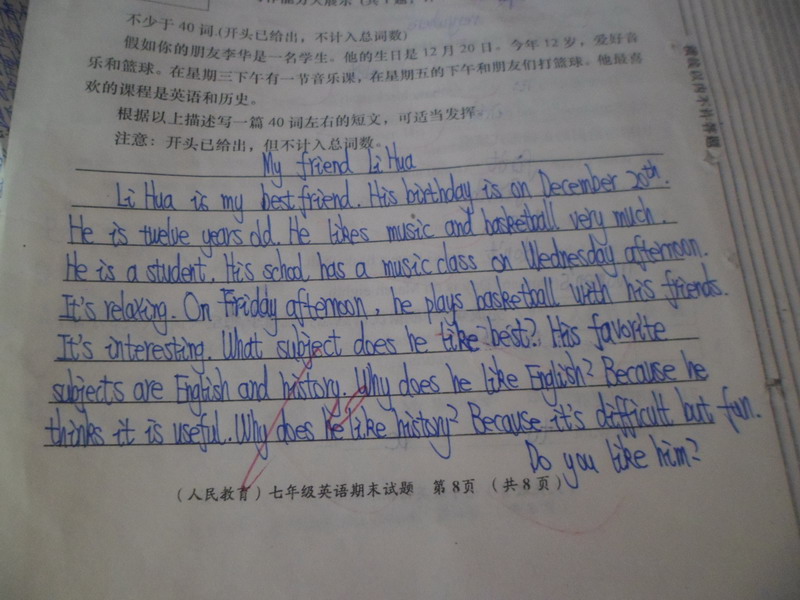 不少于 40 词.(开头已给出，不计入总词数)
假如你的朋友李华是一名学生。他的生日是 12 月 20 日。今年 12 岁，爱好音
乐和篮球。在星期三下午有一节音乐课，在星期五的下午和朋友们打篮球。他最喜
欢的课程是英语和历史。
根据以上描述写一篇 40 词左右的短文，可适当发挥。
注意：开头已给出，但不计入总词数。
My friend Li Hua
Li Hua is my best friend. His birthday is on December 20th.
He is twelve years old. He likes music and basketball very much.
He is a student. His school has a music class on Wednesday afternoon.
It's relaxing. On Friday afternoon, he plays basketball with his friends.
It's interesting. What subject does he like best? His favorite
subjects are English and history. Why does he like English? Because he
thinks it is useful. Why does he like history? Because it's difficult but fun.
Do you like him?
(人民教育) 七年级英语期末试题 第 8 页 (共 8 页)